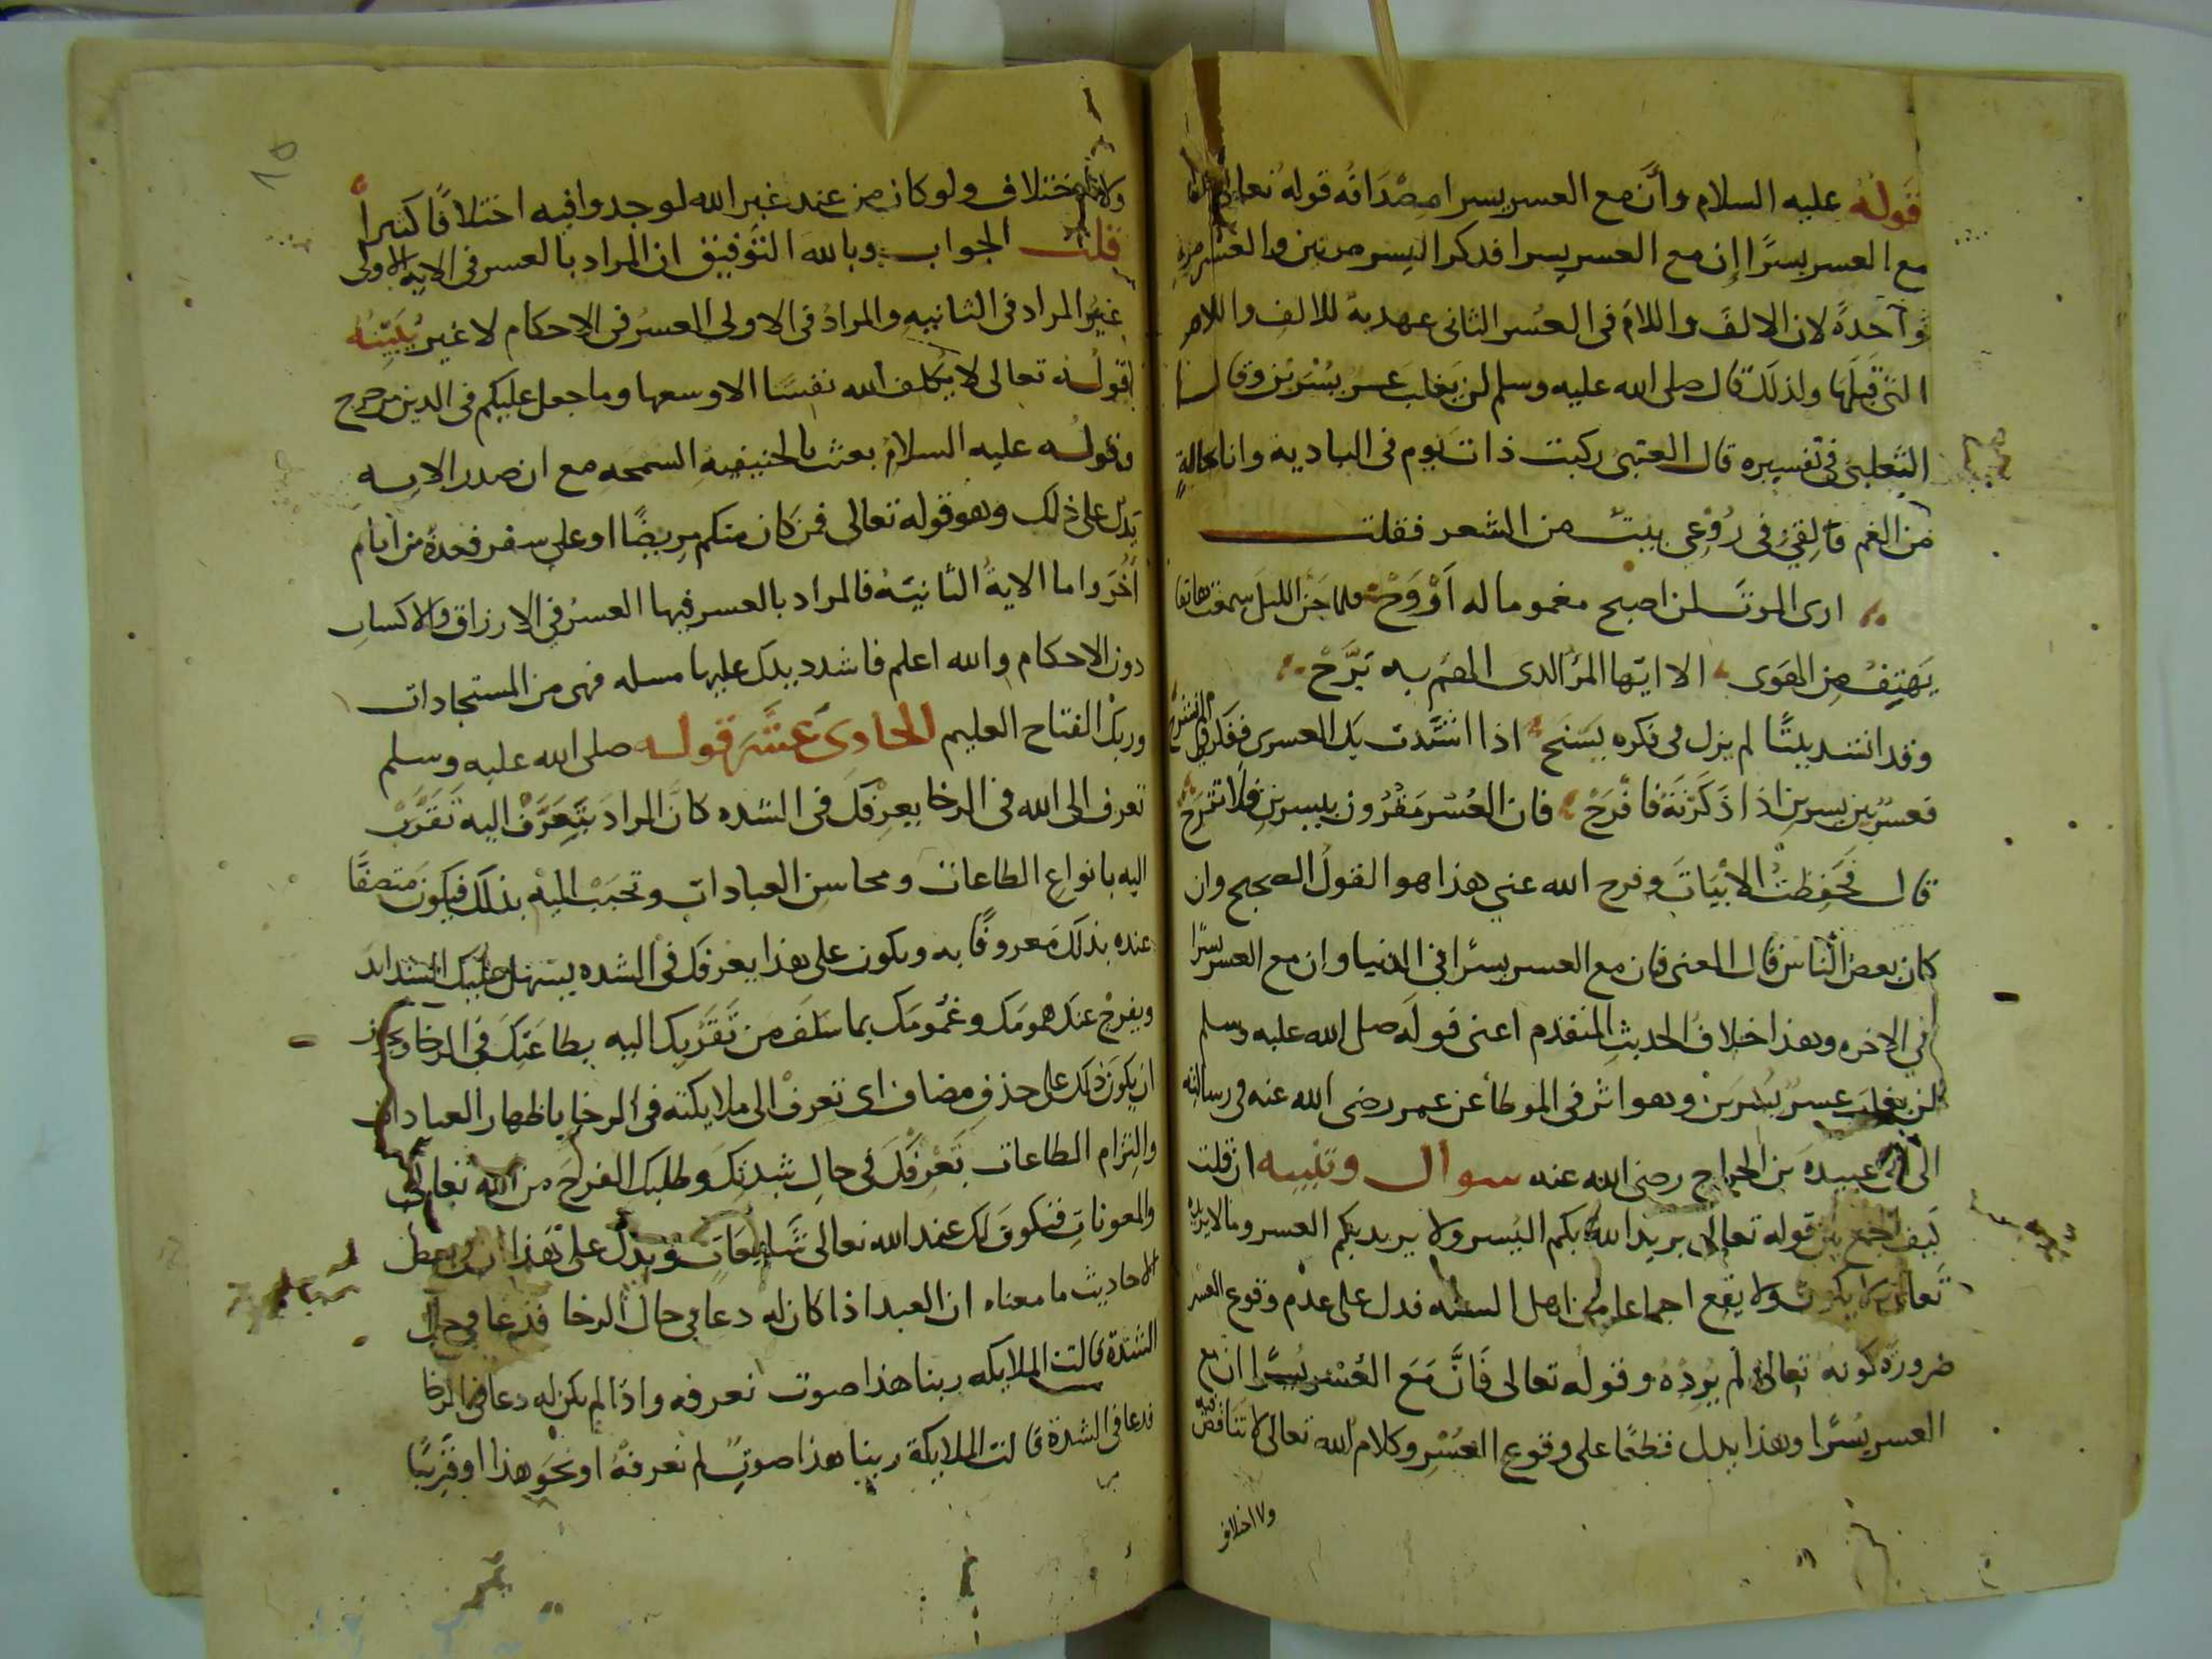 قوله عليه السلام وأنّ مع العسر يسرا مصداقه قوله تعالى فان
مع العسر يسرًا إن مع العسر يسرا فدكر اليسر مرتين والعسر مرة
واحدة لان الالف واللام فى العسر الثانى عهدية للالف واللام
التى قبلها ولذلك قال صلى الله عليه وسلم لن يغلب عسر يسرين وقال
الثعلبى فى تفسيره قال العتبى ركبت ذات يوم فى البادية وانا بحالةٍ
من الغم فالقى فى رُوْعى بيتٌ من الشعر فقلت
ارى الموت لمن اصبح مغموما له اَرْوَحْ فلما جن الليل سمعت هاتفا
يهتف من الهوى الا ايها المرء الدى الهم به بَرَّحْ
وقد انشد بيتًا لم يزل فى فكره يسنح اذا اشتدت بك العسرى ففكر فى الم نشرح
فعسر بين يسرين اذا ذكرته فافرح فان العسر مقرون بيسرين فلا تترح
قال فحفظت الابيات وفرح الله عني هذا هو القول الصحيح وان
كان بعض الناس قال المعنى فان مع العسر يسرًا فى الدنيا وان مع العسر يسرًا
فى الاخره وهذا خلاف الحديث المتقدم اعنى قوله صلى الله عليه وسلم
لن يغلب عسر يسرين وهو اثر فى الموطأ عن عمر رضى الله عنه فى رسالته
الى ابى عبيدة بن الجراح رضى الله عنه سوال وتنبيه ان قلت
كيف الجمع بين قوله تعالى يريد الله بكم اليسر ولا يريد بكم العسر وما لا يريده
تعالى لا يكون ولا يقع اجماعا من اهل السنه فدل على عدم وقوع العسر
ضرورة كونه تعالى لم يُرِدْهُ وقوله تعالى فَانَّ مَعَ العُسْر يُسرًا ان مع
العسر يسرًا وهذا يدل قطعًا على وقوع العُسْر وكلام الله تعالى لا تناقض فيه
ولا اختلاف
ولا اختلاف ولو كان من عند غير الله لوجدوا فيه اختلافًا كثيرًا
قلت الجواب وبالله التوفيق ان المراد بالعسر فى الاية الاولى
غير المراد فى الثانيه والمراد فى الاولى العسر فى الاحكام لا غير يُبَيِّنُهُ
قوله تعالى لا يكلف الله نفسًا الا وسعها وما جعل عليكم فى الدين من حرج
وقوله عليه السلام بعثت بالحنيفيه السمحه مع ان صدر الايه
يدل على ذلك وهو قوله تعالى فمن كان منكم مريضًا او على سفر فعدة من ايام
أُخَر واما الاية الثانيَة فالمراد بالعسر فيها العسرُ فى الارزاق والاكساب
دون الاحكام والله اعلم فاشدد يدك عليها مسله فهى من المستجادات
وربك الفتاح العليم الحادى عشر قوله صلى الله عليه وسلم
تعرف الى الله فى الرخا يعرفك فى الشده كانّ المراد بتعرّف اليه تَقَرَّبْ
اليه بانواع الطاعات ومحاسن العبادات وتحبب اليه بذلك فيكون متصفًا
عنده بذلك معروفًا به ويكون على هذا يعرفك فى الشده يسهل عليك الشدايد
ويفرح عنك همومك وغمومك بما سَلَفَ من تَقَرُّبِك اليه بطاعتك فى الرخا ويجوز
ان يكون ذلك على حذف مضاف اى تعرف الى ملايكته فى الرخا باظهار العبادات
والتزام الطاعات تَعْرِفُكَ فى حال شدتك وطلبك الفرج من الله تعالى
والمعونات فتكون لك عند الله تعالى شافعات ويدل على هذا ان فى بعض
الاحاديث ما معناه ان العبد اذا كان له دعا فى حال الرخا فدعا فى حال
الشدة قالت الملايكه ربنا هذا صوت نعرفه واذا لم يكن له دعا فى الرخا
فدعا فى الشدة قالت الملايكة ربنا هذا صوت لم نعرفه او نحو هذا او قريبًا